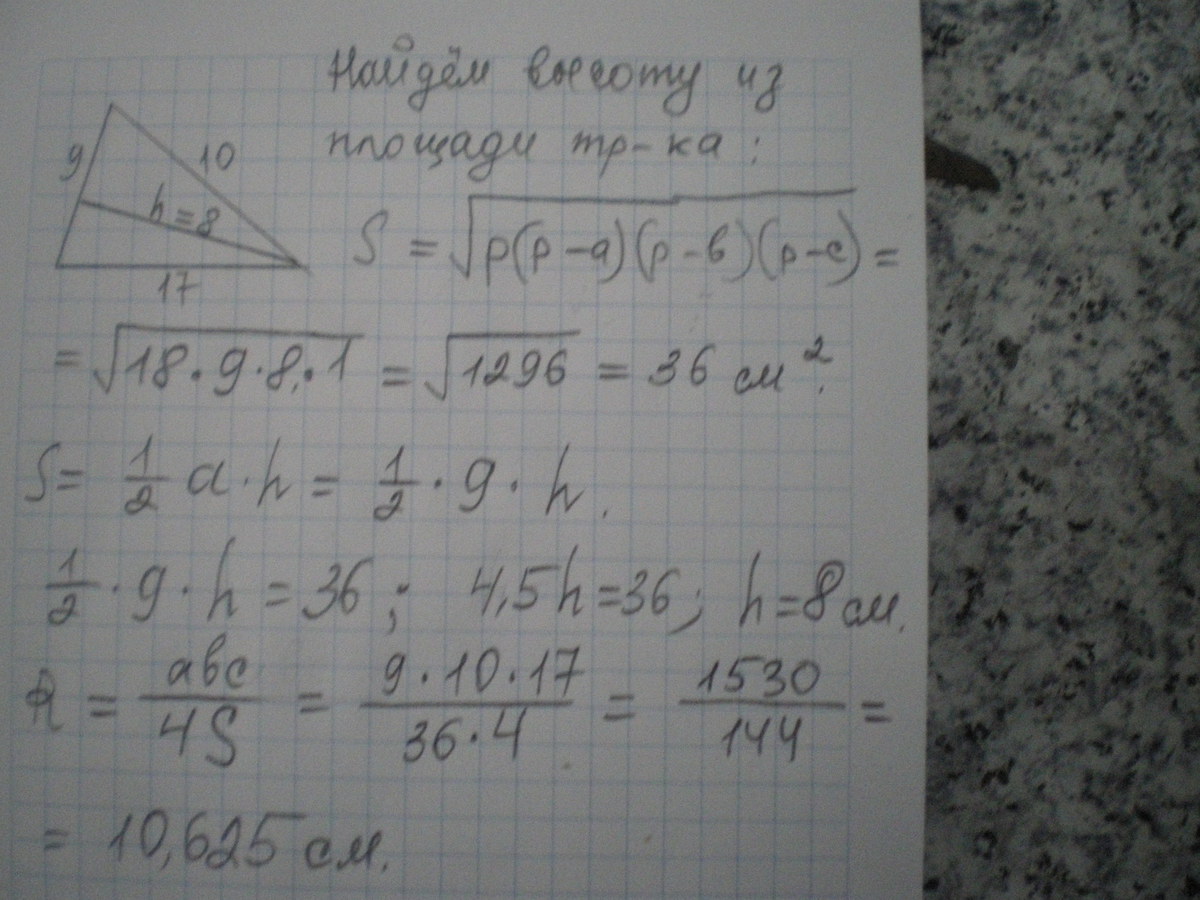 Найдём высоту из
площади тр-ка :
9
10
h = 8
17
S = √p(p-a)(p-в)(p-c) =
= √18·9·8·1 = √1296 = 36 см².
S = 1/2 a·h = 1/2 · 9 · h.
1/2 · 9 · h = 36 ; 4,5h=36; h=8 см.
R = aвc/4S = 9·10·17/36·4 = 1530/144 =
= 10,625 см.